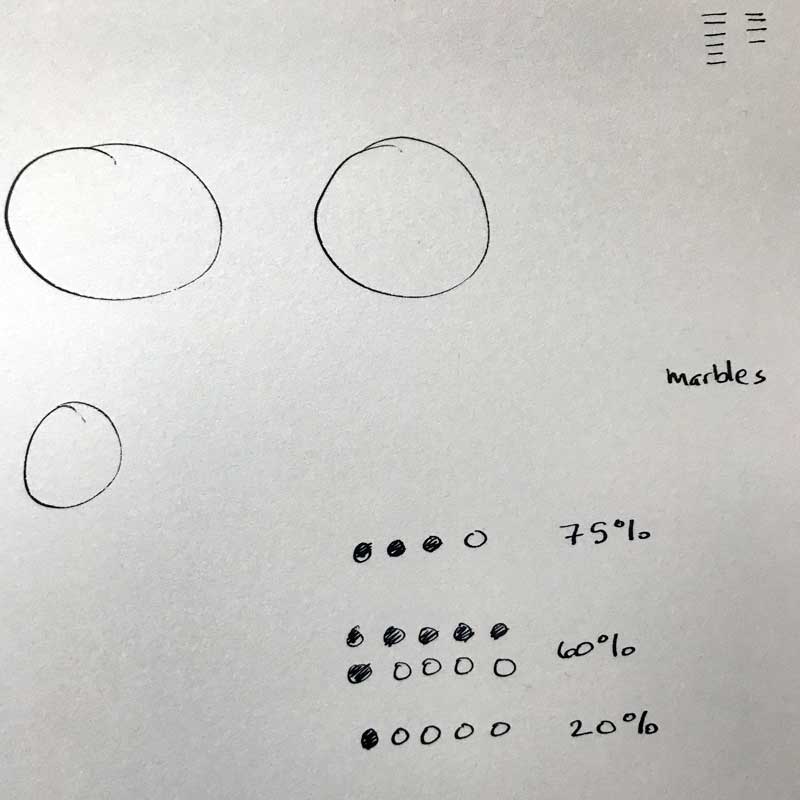 marbles
75%
60%
20%